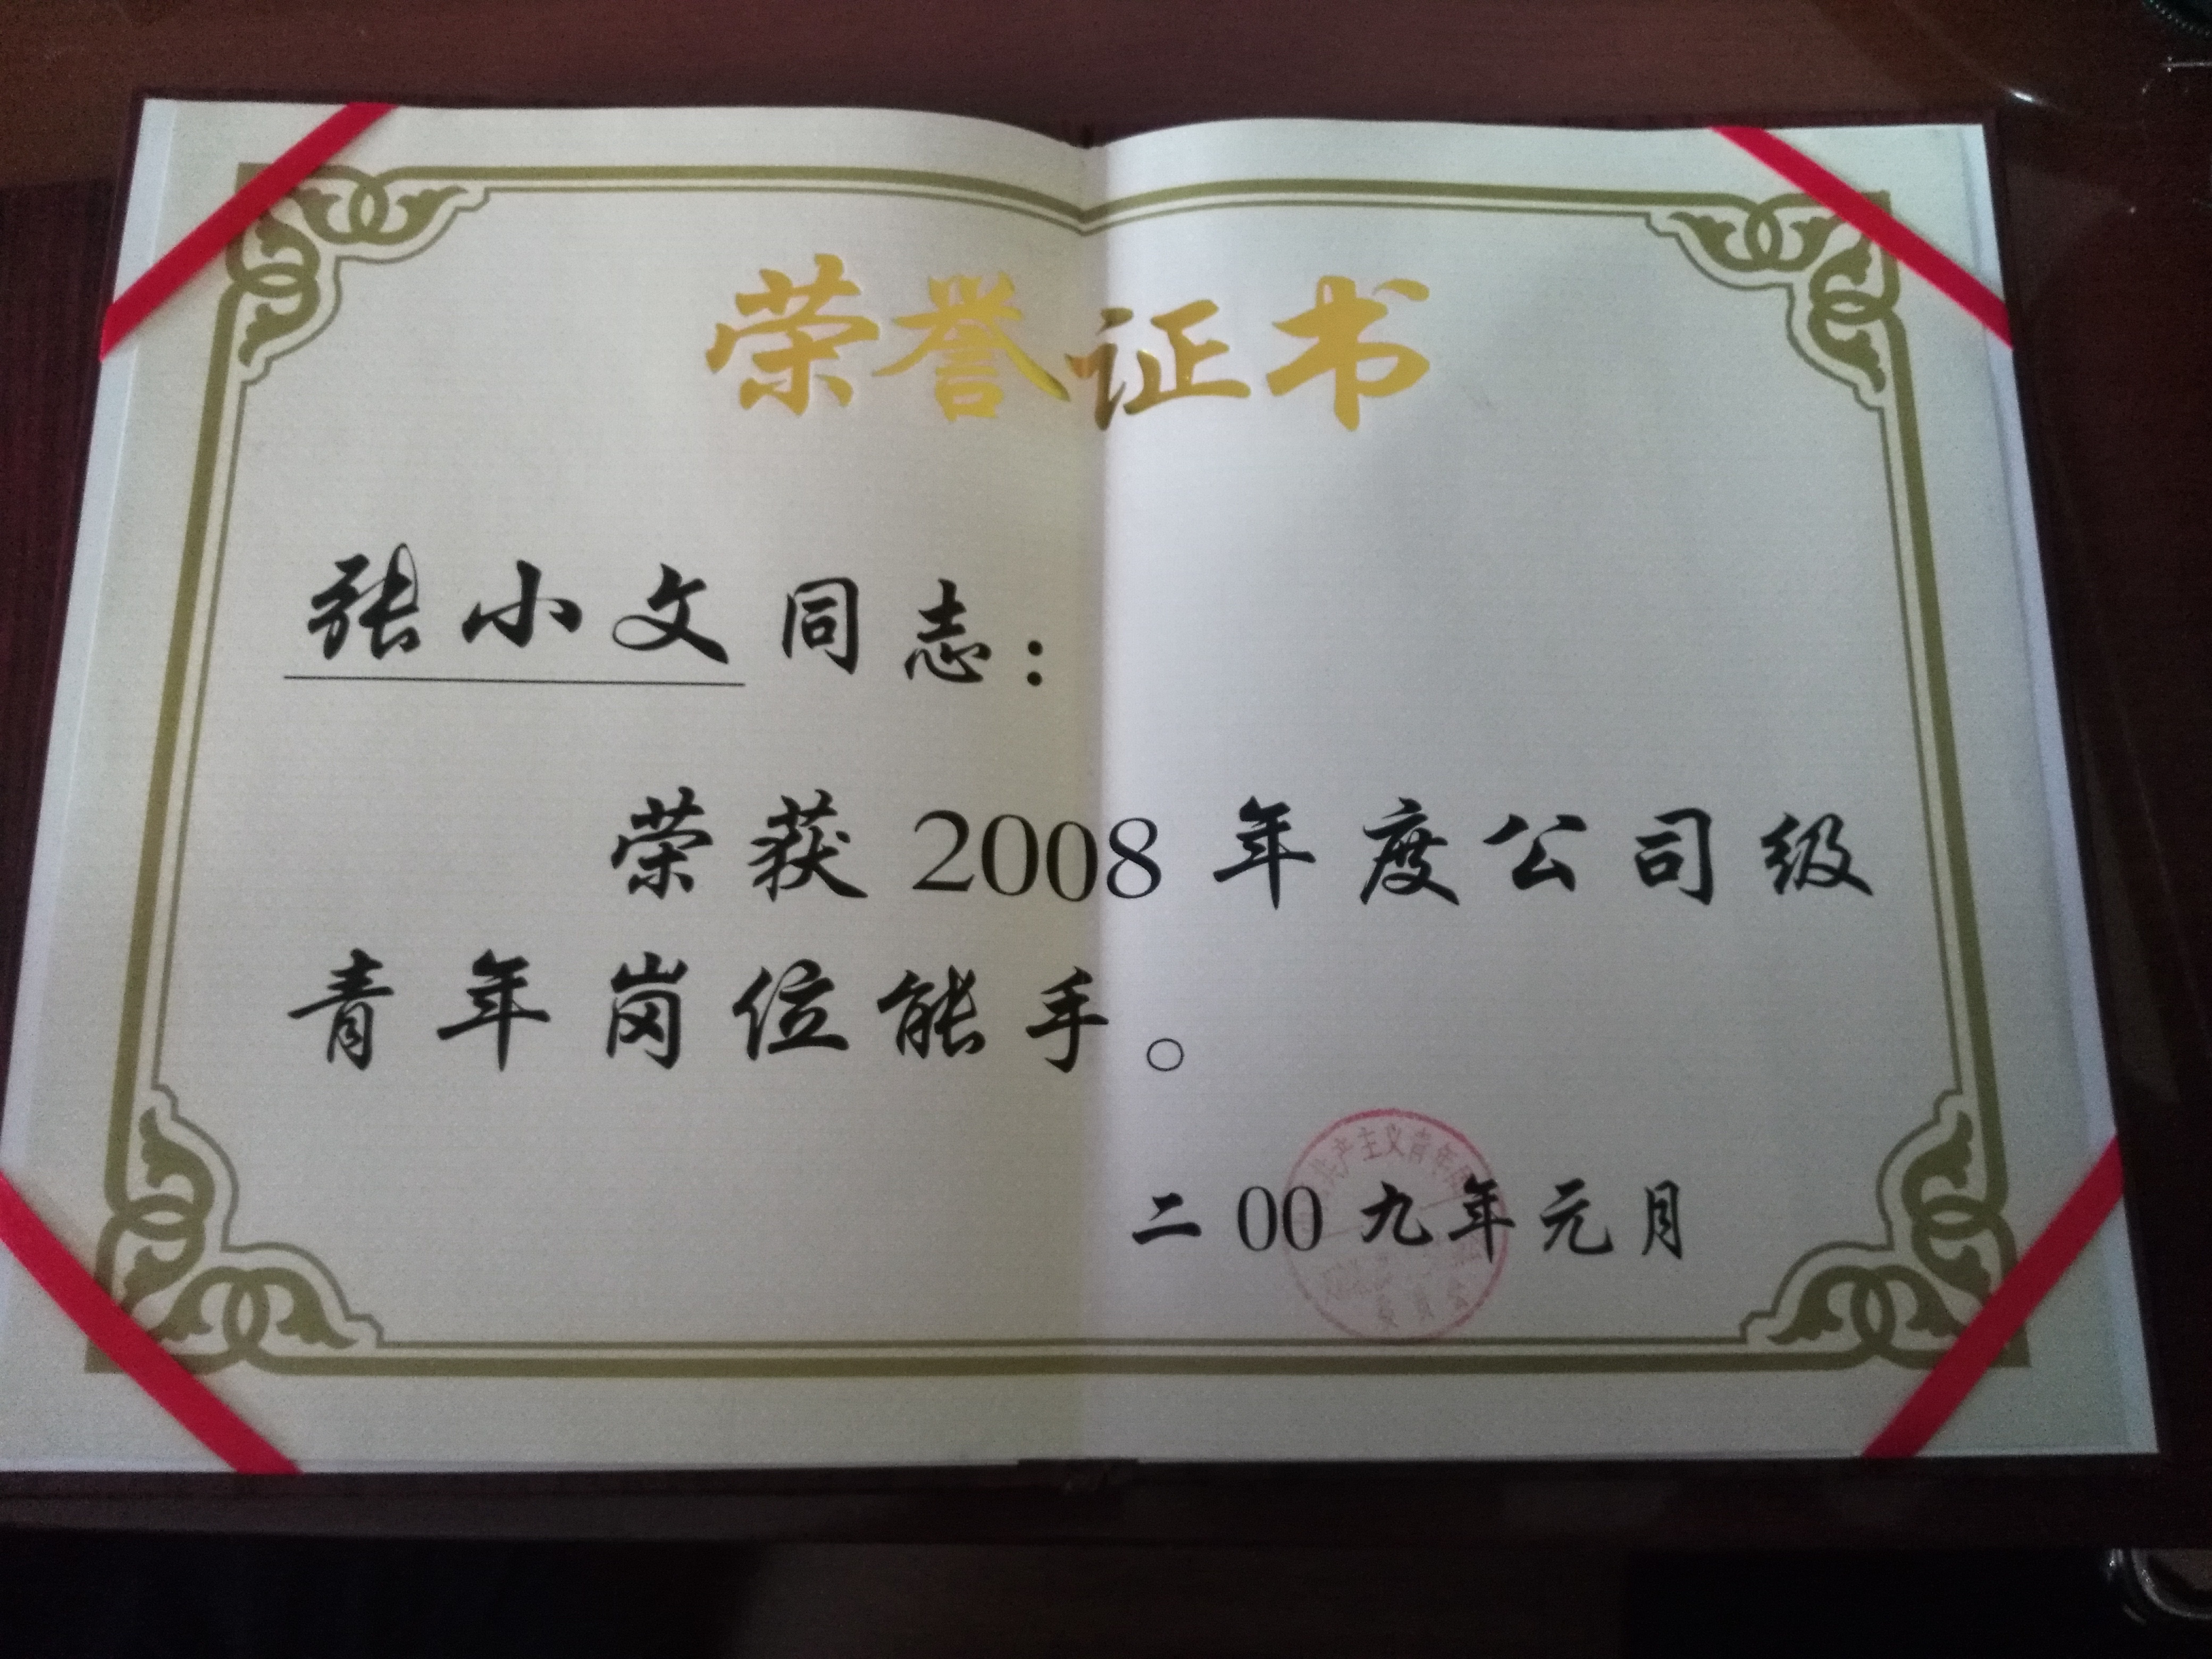 荣誉证书
张小文同志：
荣获2008年度公司级
青年岗位能手。
共产主义青年团
二00九年元月
委员会